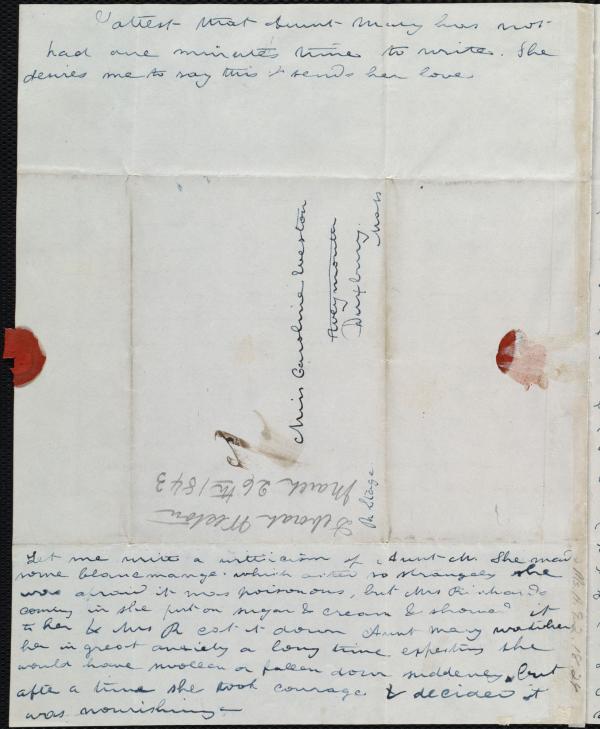 I attest that Aunt Mary has not
had one minute's time to write. She
desires me to say this & sends her love
Miss Caroline Weston
Weymouth
Duxbury.
Mass
Pr Stage.
Deborah Weston
March 26th 1843
Let me write a witticism of Aunt M. She made
some blancmange which acted so strangely she
was afraid it was poisonous, but Mrs Richards
coming in she put on sugar & cream & showed it
to her & Mrs R eat it down Aunt Mary watched
her in great anxiety a long time expecting she
would have swollen or fallen down suddenly, but
after a time she took courage & decided it
was nourishing —